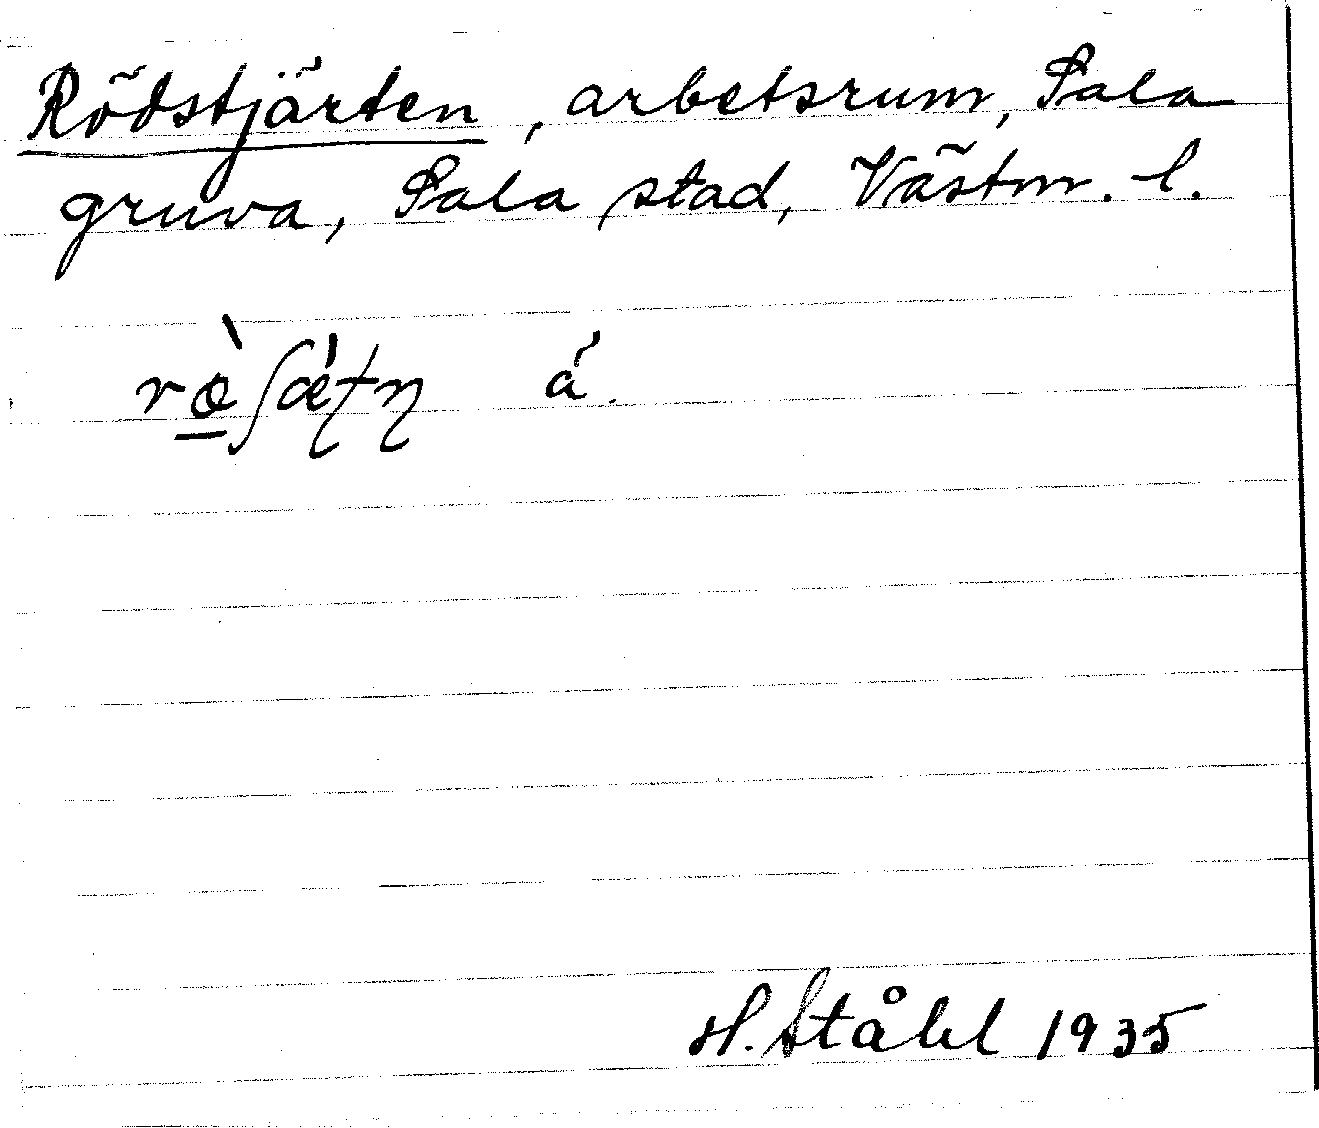 Rödstjärten, arbetsrum, Sala
gruva, Sala stad, Västm. l.
H. Ståhl 1935